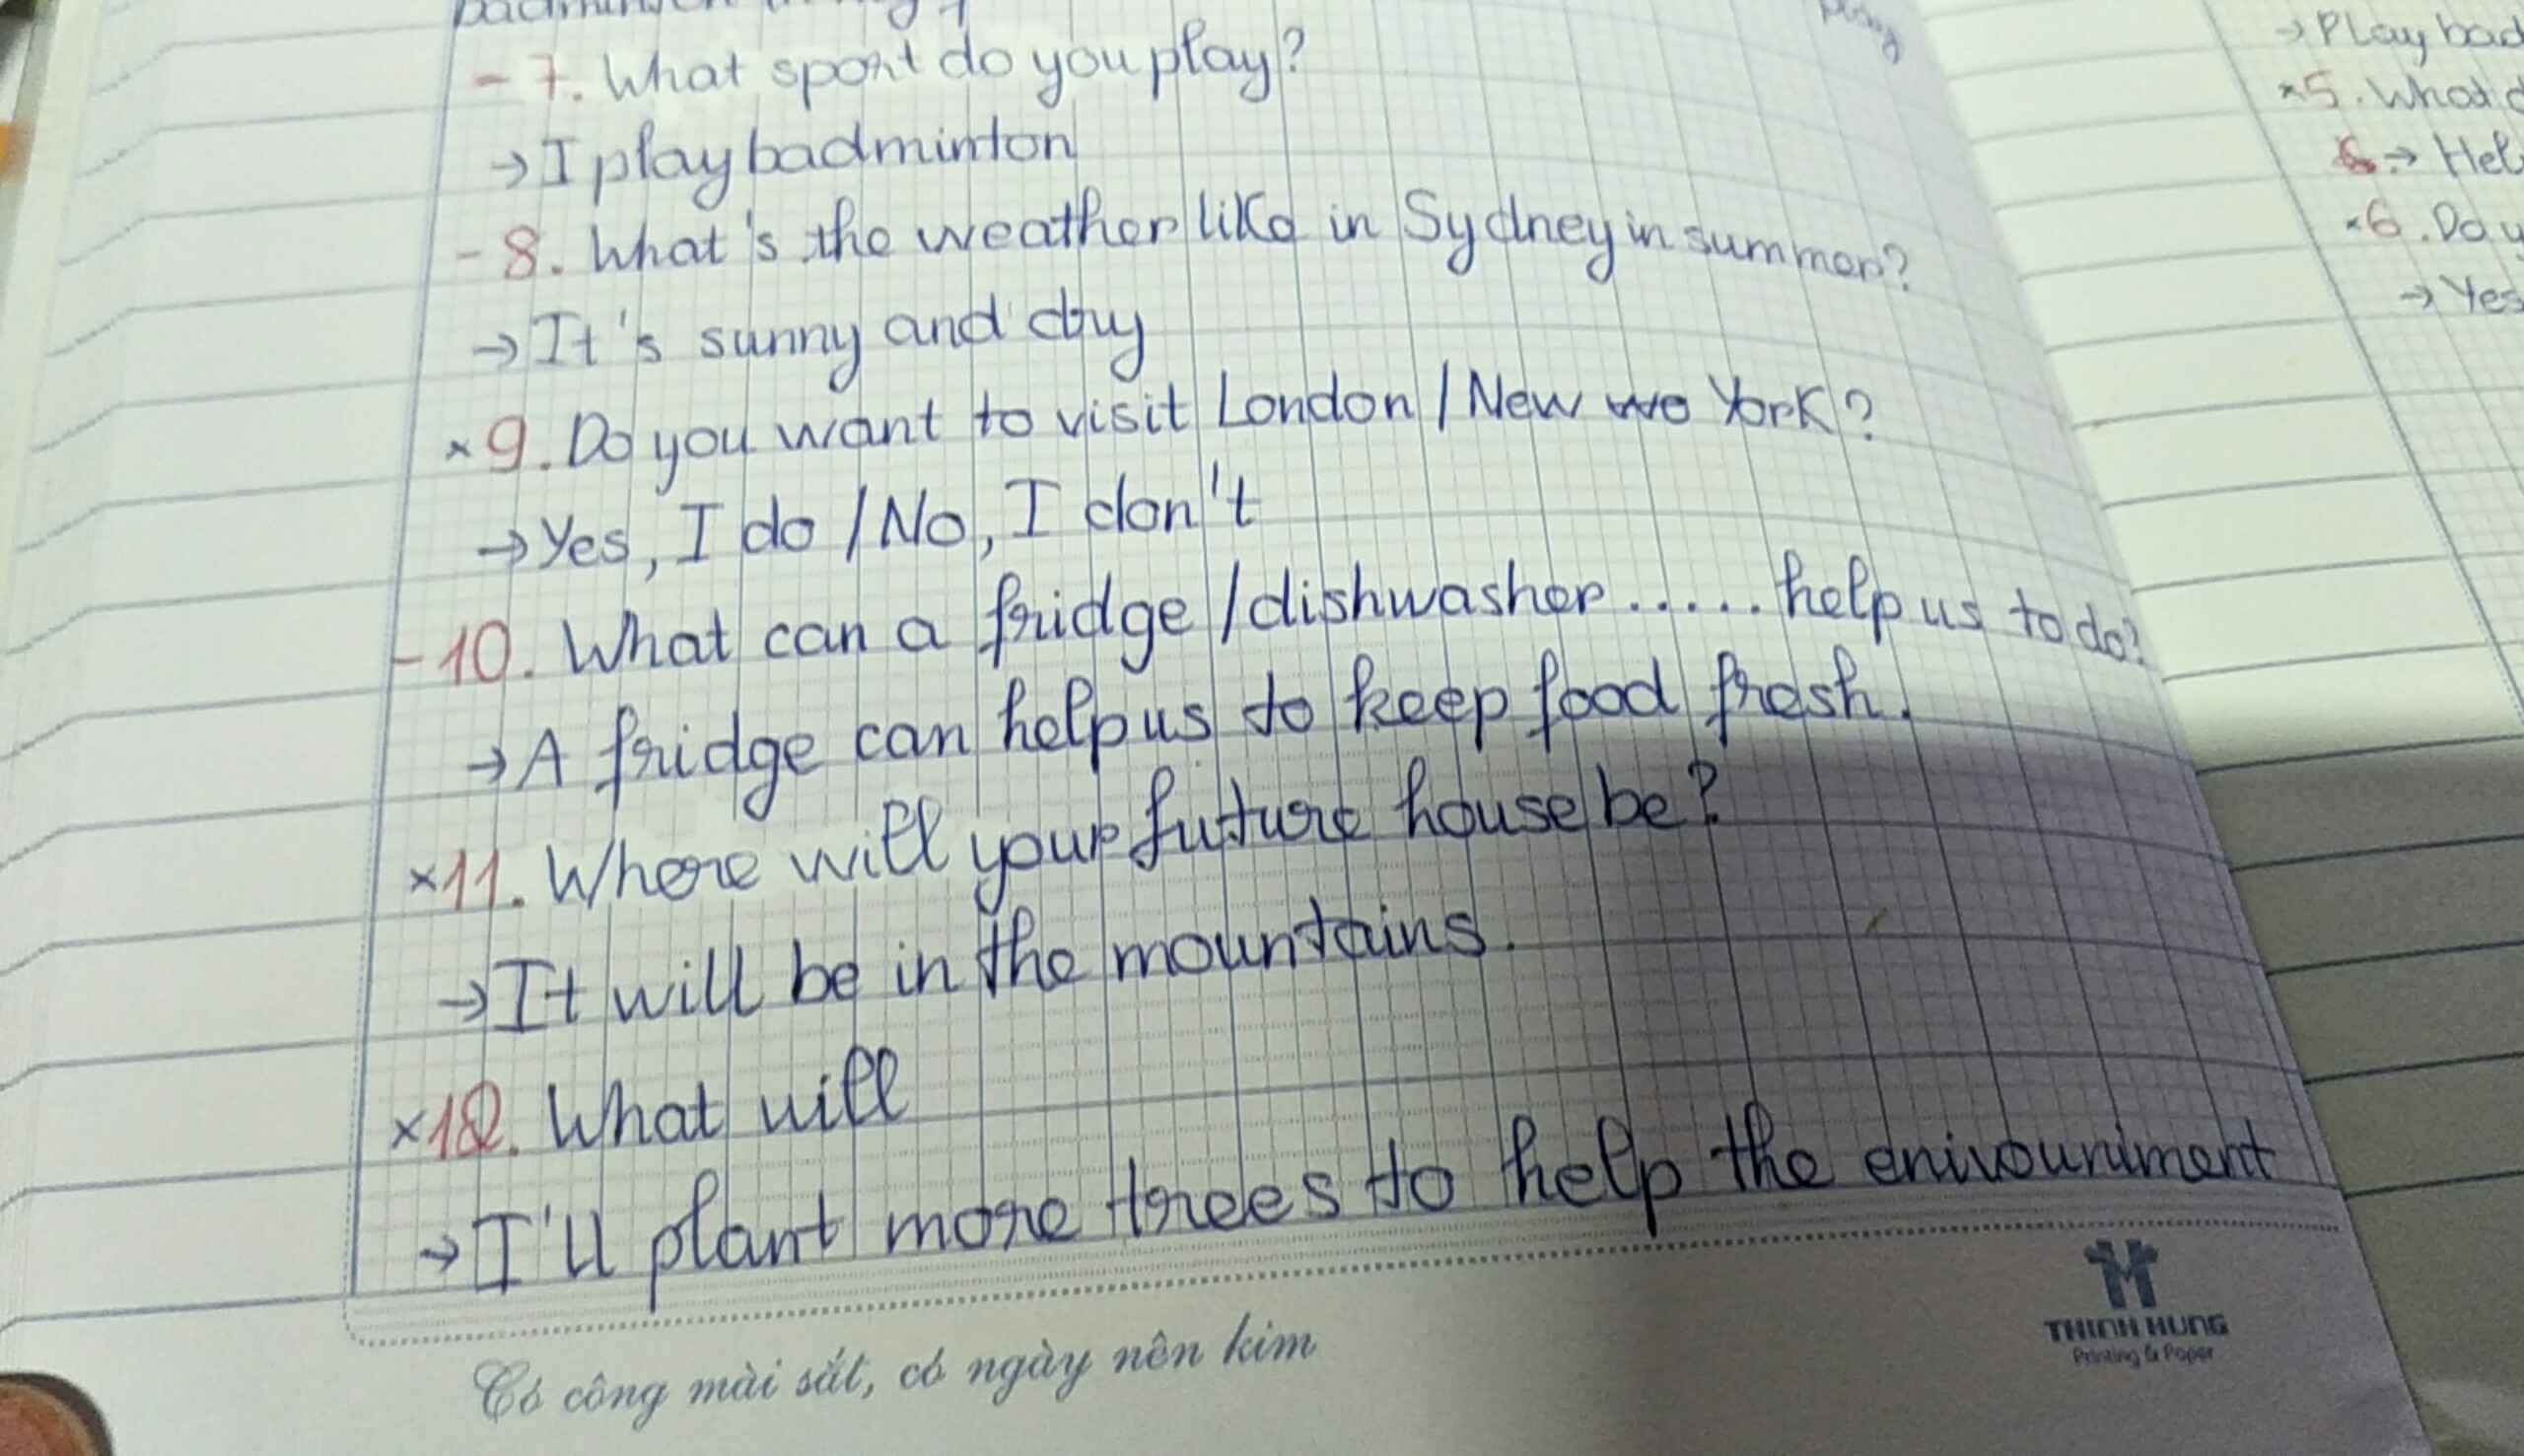 - 7. What sport do you play?
→ I play badminton
- 8. What's the weather like in Sydney in summer?
→ It's sunny and dry
× 9. Do you want to visit London / New York?
→ Yes, I do / No, I don't
- 10. What can a fridge / dishwasher ..... help us to do?
→ A fridge can help us to keep food fresh.
× 11. Where will your future house be?
→ It will be in the mountains.
× 12. What will
→ I'll plant more trees to help the enivouniment
Có công mài sắt, có ngày nên kim
THINH HUNG
Printing & Paper
play
→ Play bad
× 5. What d
→ Hel
× 6. Do y
→ Yes